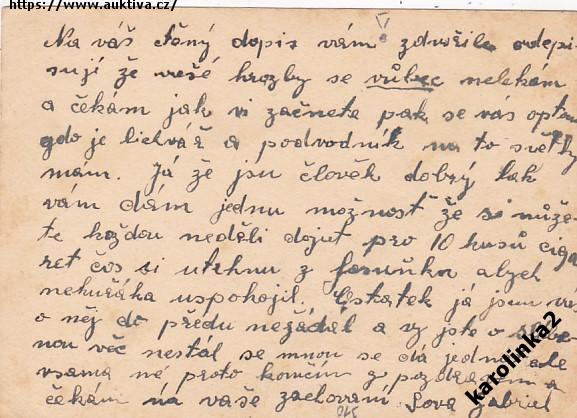 https://www.auktiva.cz/
Na váš ctěný dopis vám zdvořile odepi
sují že vaší hrozby se vůbec nelekám
a čekám jak vi začnete pak se vás optam
gdo je lichvář a podvodník na to světky
mám. Já že jsu člověk dobrý tak
vám dám jednu možnost že si může
te každou neděli dojut pro 10 kusů ciga
ret čos si utrhnu z fasuňku abych
nekuřáka uspokojil. Ostatek já jsem vas
o něj do předu nežádal a vy jste o
nou věc nestál se mnou se dá jednat ale
vsama né proto končím z pozdravem a
čekám na vaše zachovaní. Sova Gabriel
karolinka2